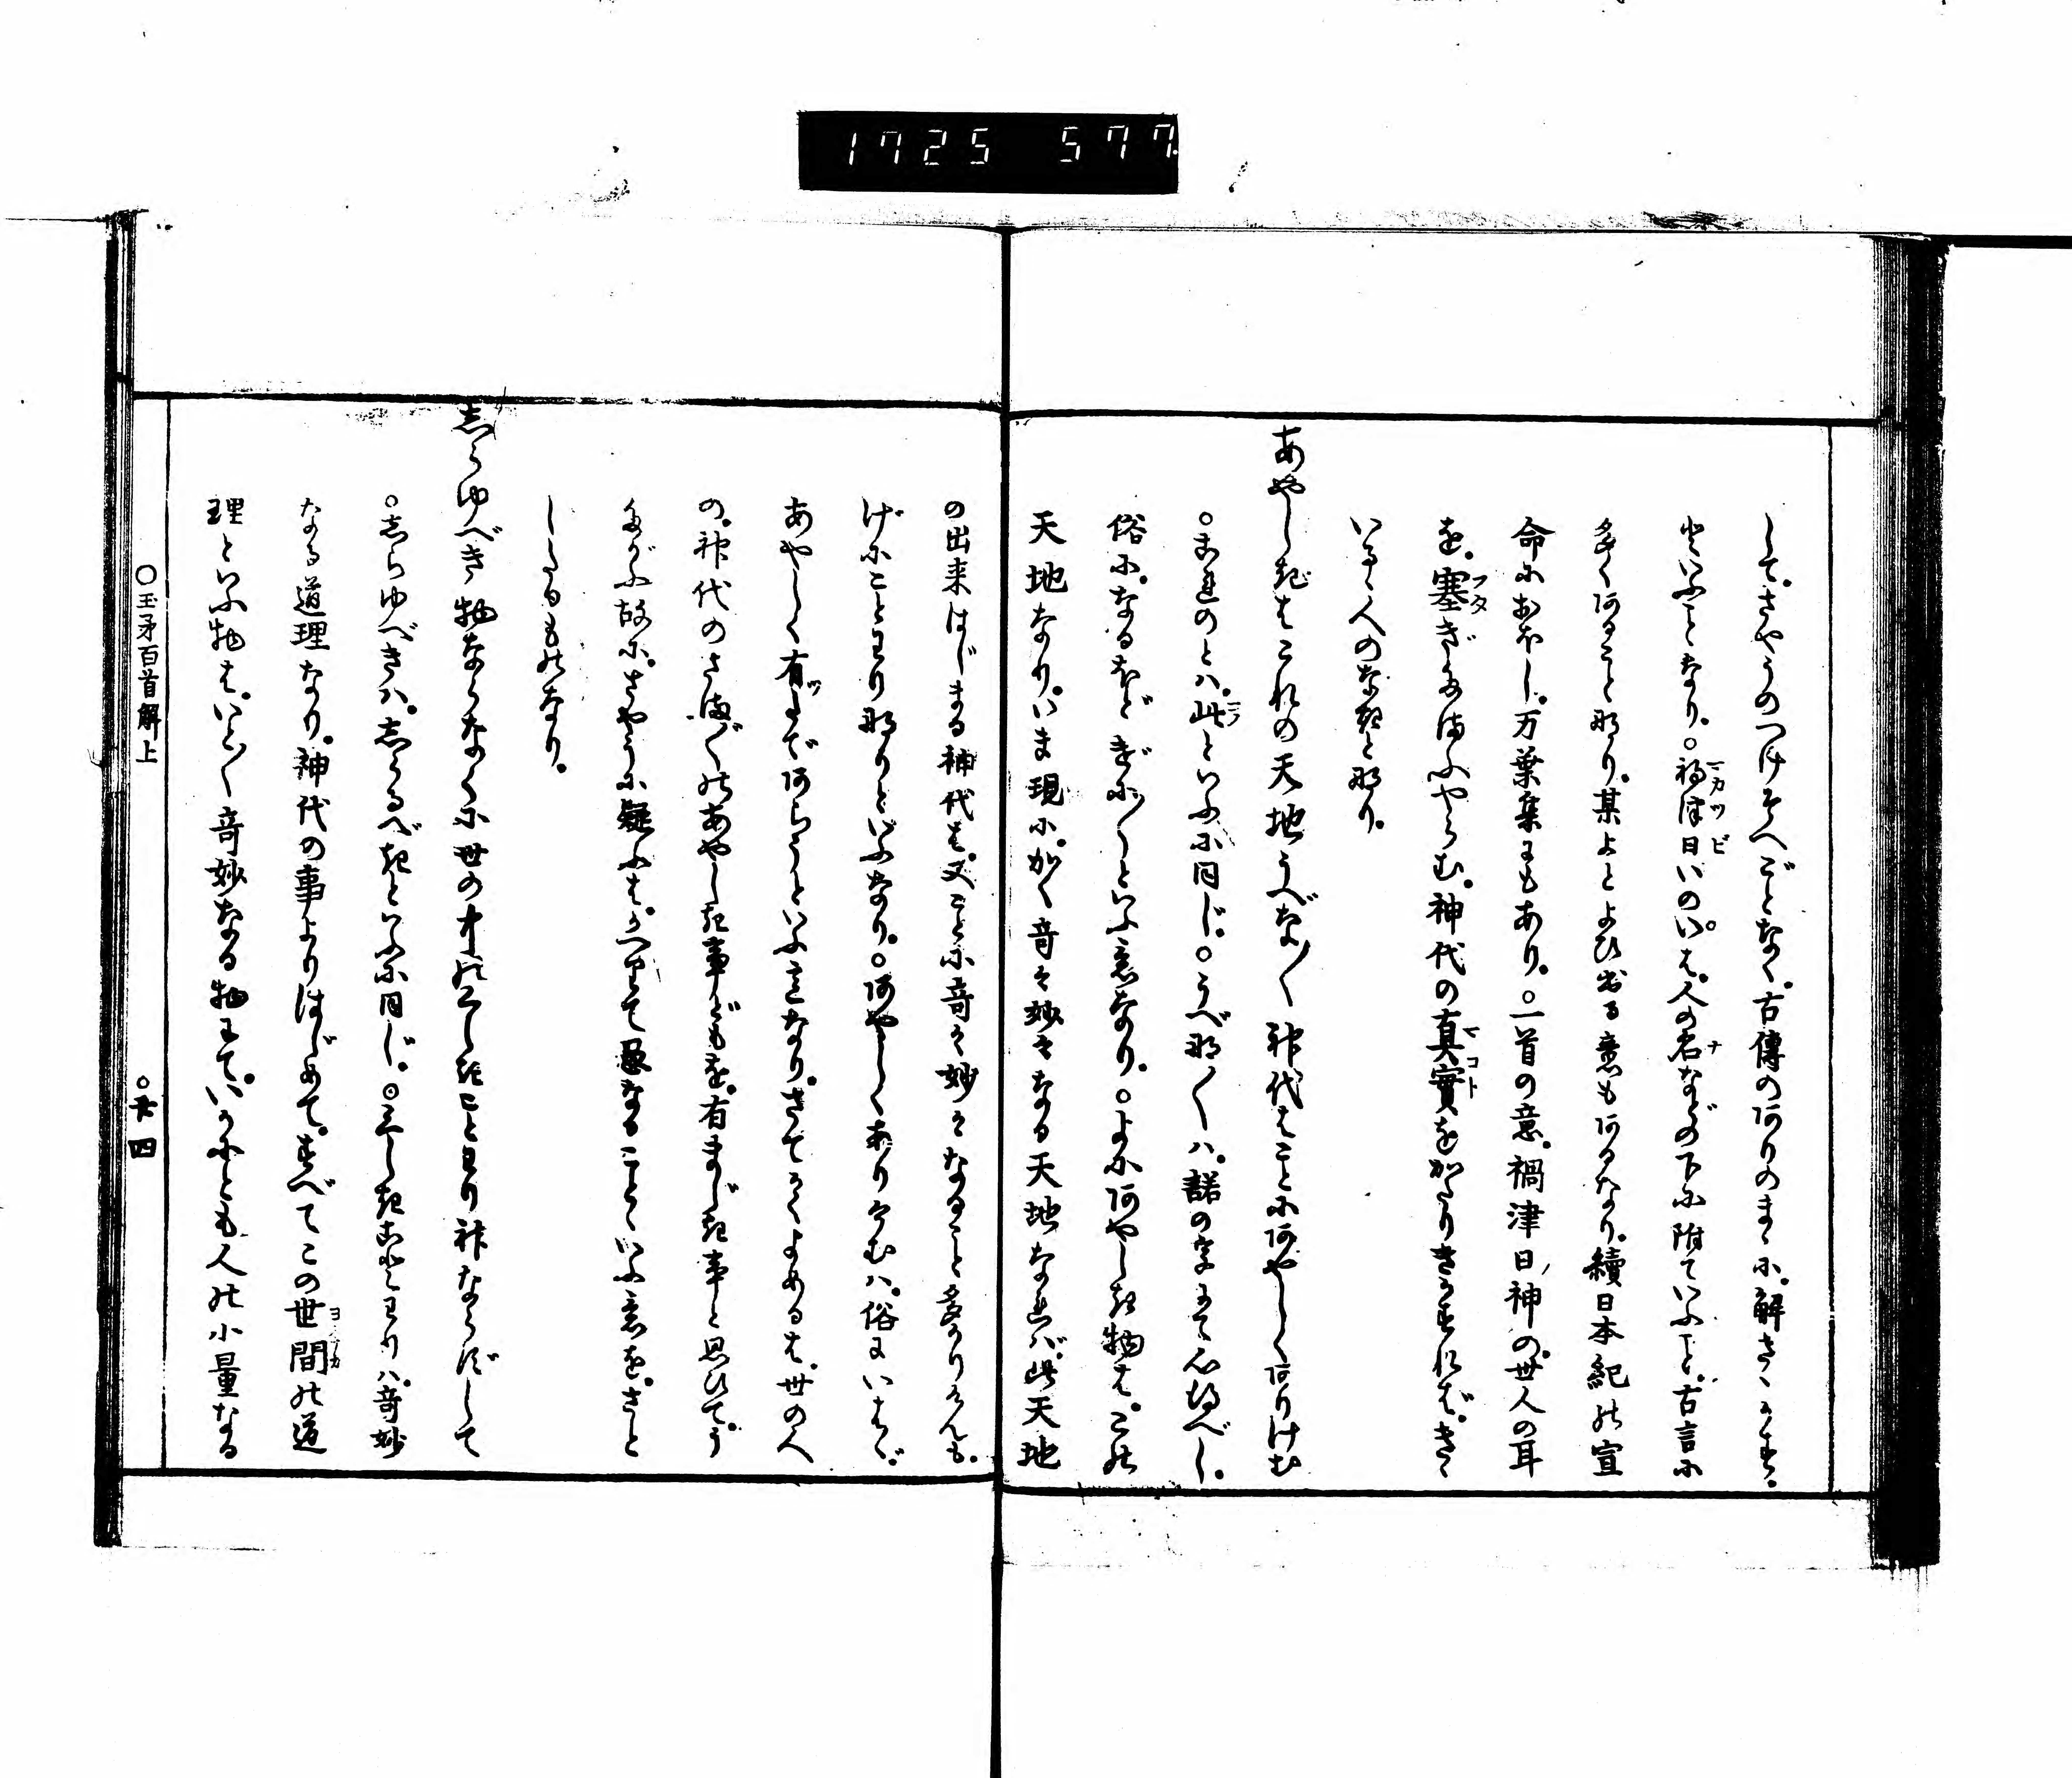 1725 577
して。さやうのつけそへごとなく。古傳のありのまゝに。解さゝかす。
といふことなり。○禍津日いのい。は。人の名などの下に附ていふこと。古言に
多くあること那り。某よとよひ出る意もあるなり。續日本紀の宣
命におほし。万葉集にもあり。○一首の意。禍津日ノ神の。世人の耳
を。塞ぎたまふやらむ。神代の真實をかたりきかすれば。きゝ
いるゝ人のなきと那り。
あやしきはこれの天地うべな〳〵神代はことにあやしくありけむ
○これのとハ。此といふに同じ。○うべ那〳〵ハ。諾の字にて心得べし。
俗に。なるほどげに〳〵といふ意なり。○よにあやしき物は。この
天地なり。いま現に。かく奇々妙々なる天地なれバ。此天地
の出来はじまる神代は。又ことに奇々妙々なること多かりけんも。
げにことわり那りといふなり。○あやしくありけむハ。俗にいはゞ。
あやしく有ツまであらうといふ意なり。さてかくよめるは。世の人
の。神代のさま〴〵のあやしき事どもを。有まじき事と思ひて。う
たがふ故に。さやうに疑ふは。かへりて愚なることゝいふ意を。さと
したるものなり。
志らゆべき物ならなくに世の中のくしきことわり神ならずして
○志らゆべきハ。志らるべきといふに同じ。○くしきことわりハ。奇妙
なる道理なり。神代の事よりはじめて。すべてこの世間の道
理といふ物は。いと〳〵奇妙なる物にて。いかにとも人の小量なる
○玉矛百首解上
○廿四